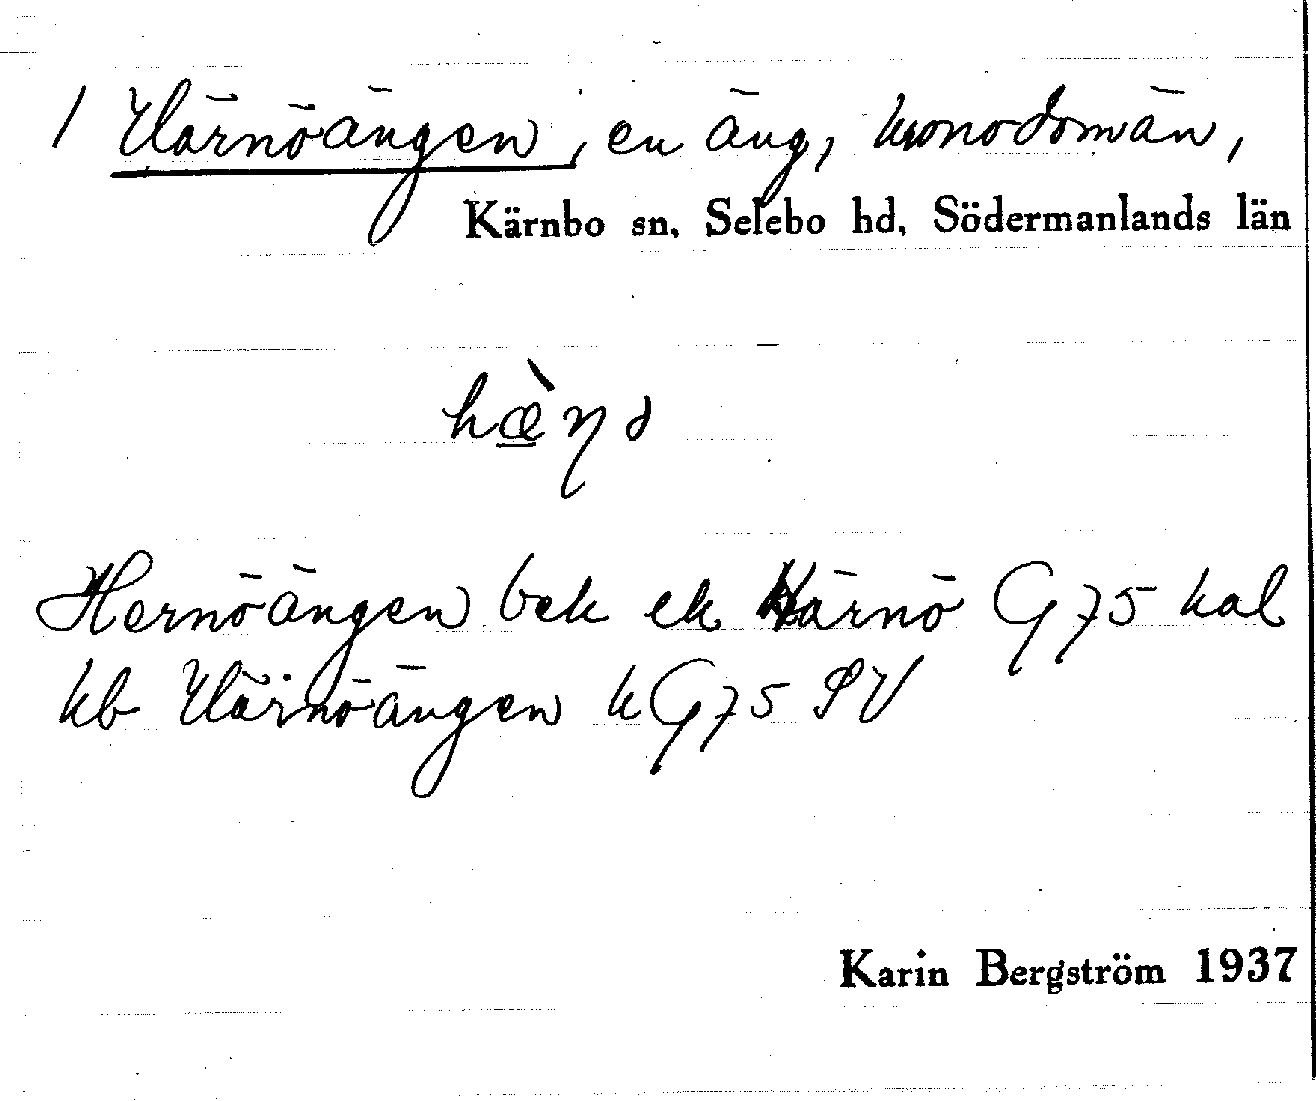 1 Härnöängen, en äng, kronodomän,
Kärnbo sn, Selebo hd, Södermanlands län
hæ̀ŋə
Hernöängen bek ek Härnö G 75 kal
kb Härnöängen k G 75 SV
Karin Bergström 1937